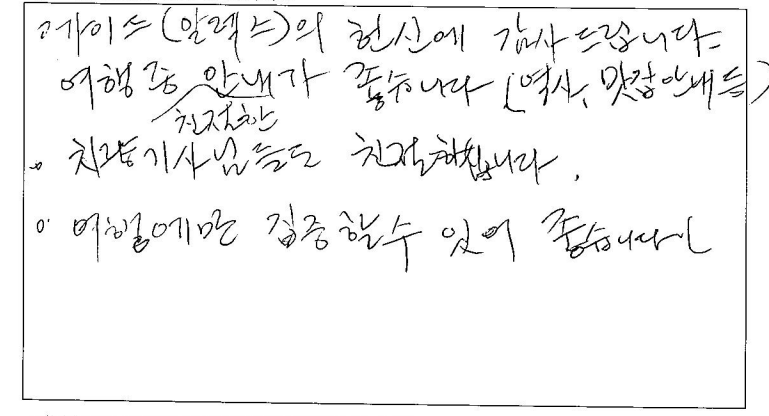 ◦가이스(알렉스)의 헌신에 감사드립니다.
여행중 안내가 좋습니다 (역사, 맛집안내 등)
친절한
◦ 차량기사님들도 친절하십니다.
◦ 여행에만 집중할수 있어 좋습니다